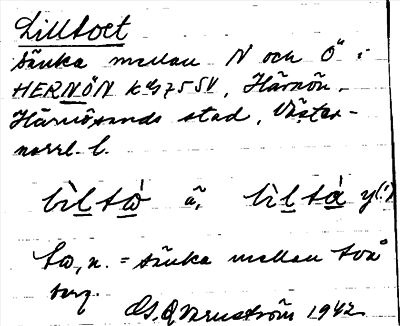 Lilltoet
sänka mellan N och Ö i
HERNÖN kbl 75 SV, Härnön,
Härnösands stad, Väster-
norrl. l.
lìltὼ ä, lìltà y(!)
tω, n. = sänka mellan två
berg.
1942